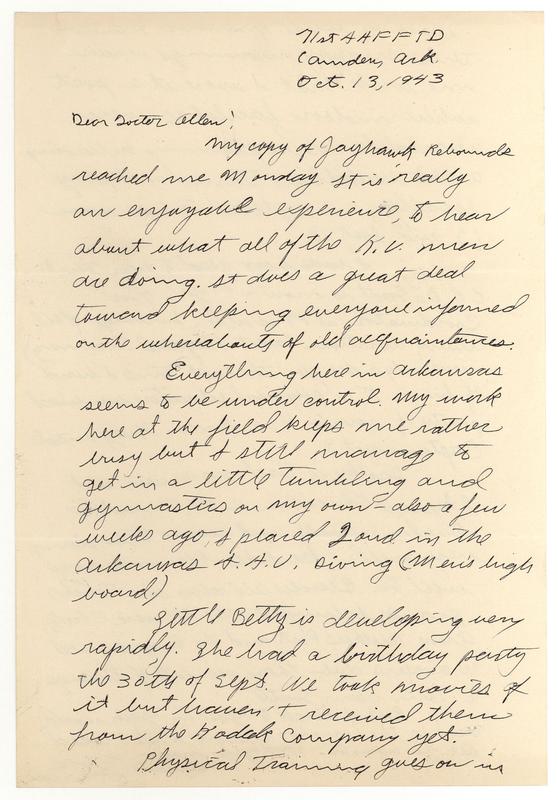 71st AAFFTD
Camden, Ark.
Oct. 13, 1943
Dear Doctor Allen!
My copy of Jayhawk Rebounds
reached me Monday It is really
an enjoyable experience, to hear
about what all of the K.U. men
are doing. It does a great deal
toward keeping everyone informed
on the whereabouts of old acquaintances.
Everything here in Arkansas
seems to be under control. My work
here at the field keeps me rather
busy but I still manage to
get in a little tumbling and
gymnastics on my own - also a few
weeks ago, I placed 2nd in the
Arkansas A.A.U. diving (Men's high
board.)
Little Betty is developing very
rapidly. She had a birthday party
the 30th of Sept. We took movies of
it but haven't received them
from the Kodak Company yet.
Physical Training goes on in